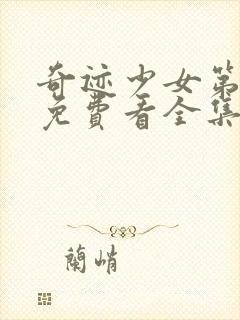 奇迹少女第
免費看全集
蘭峭